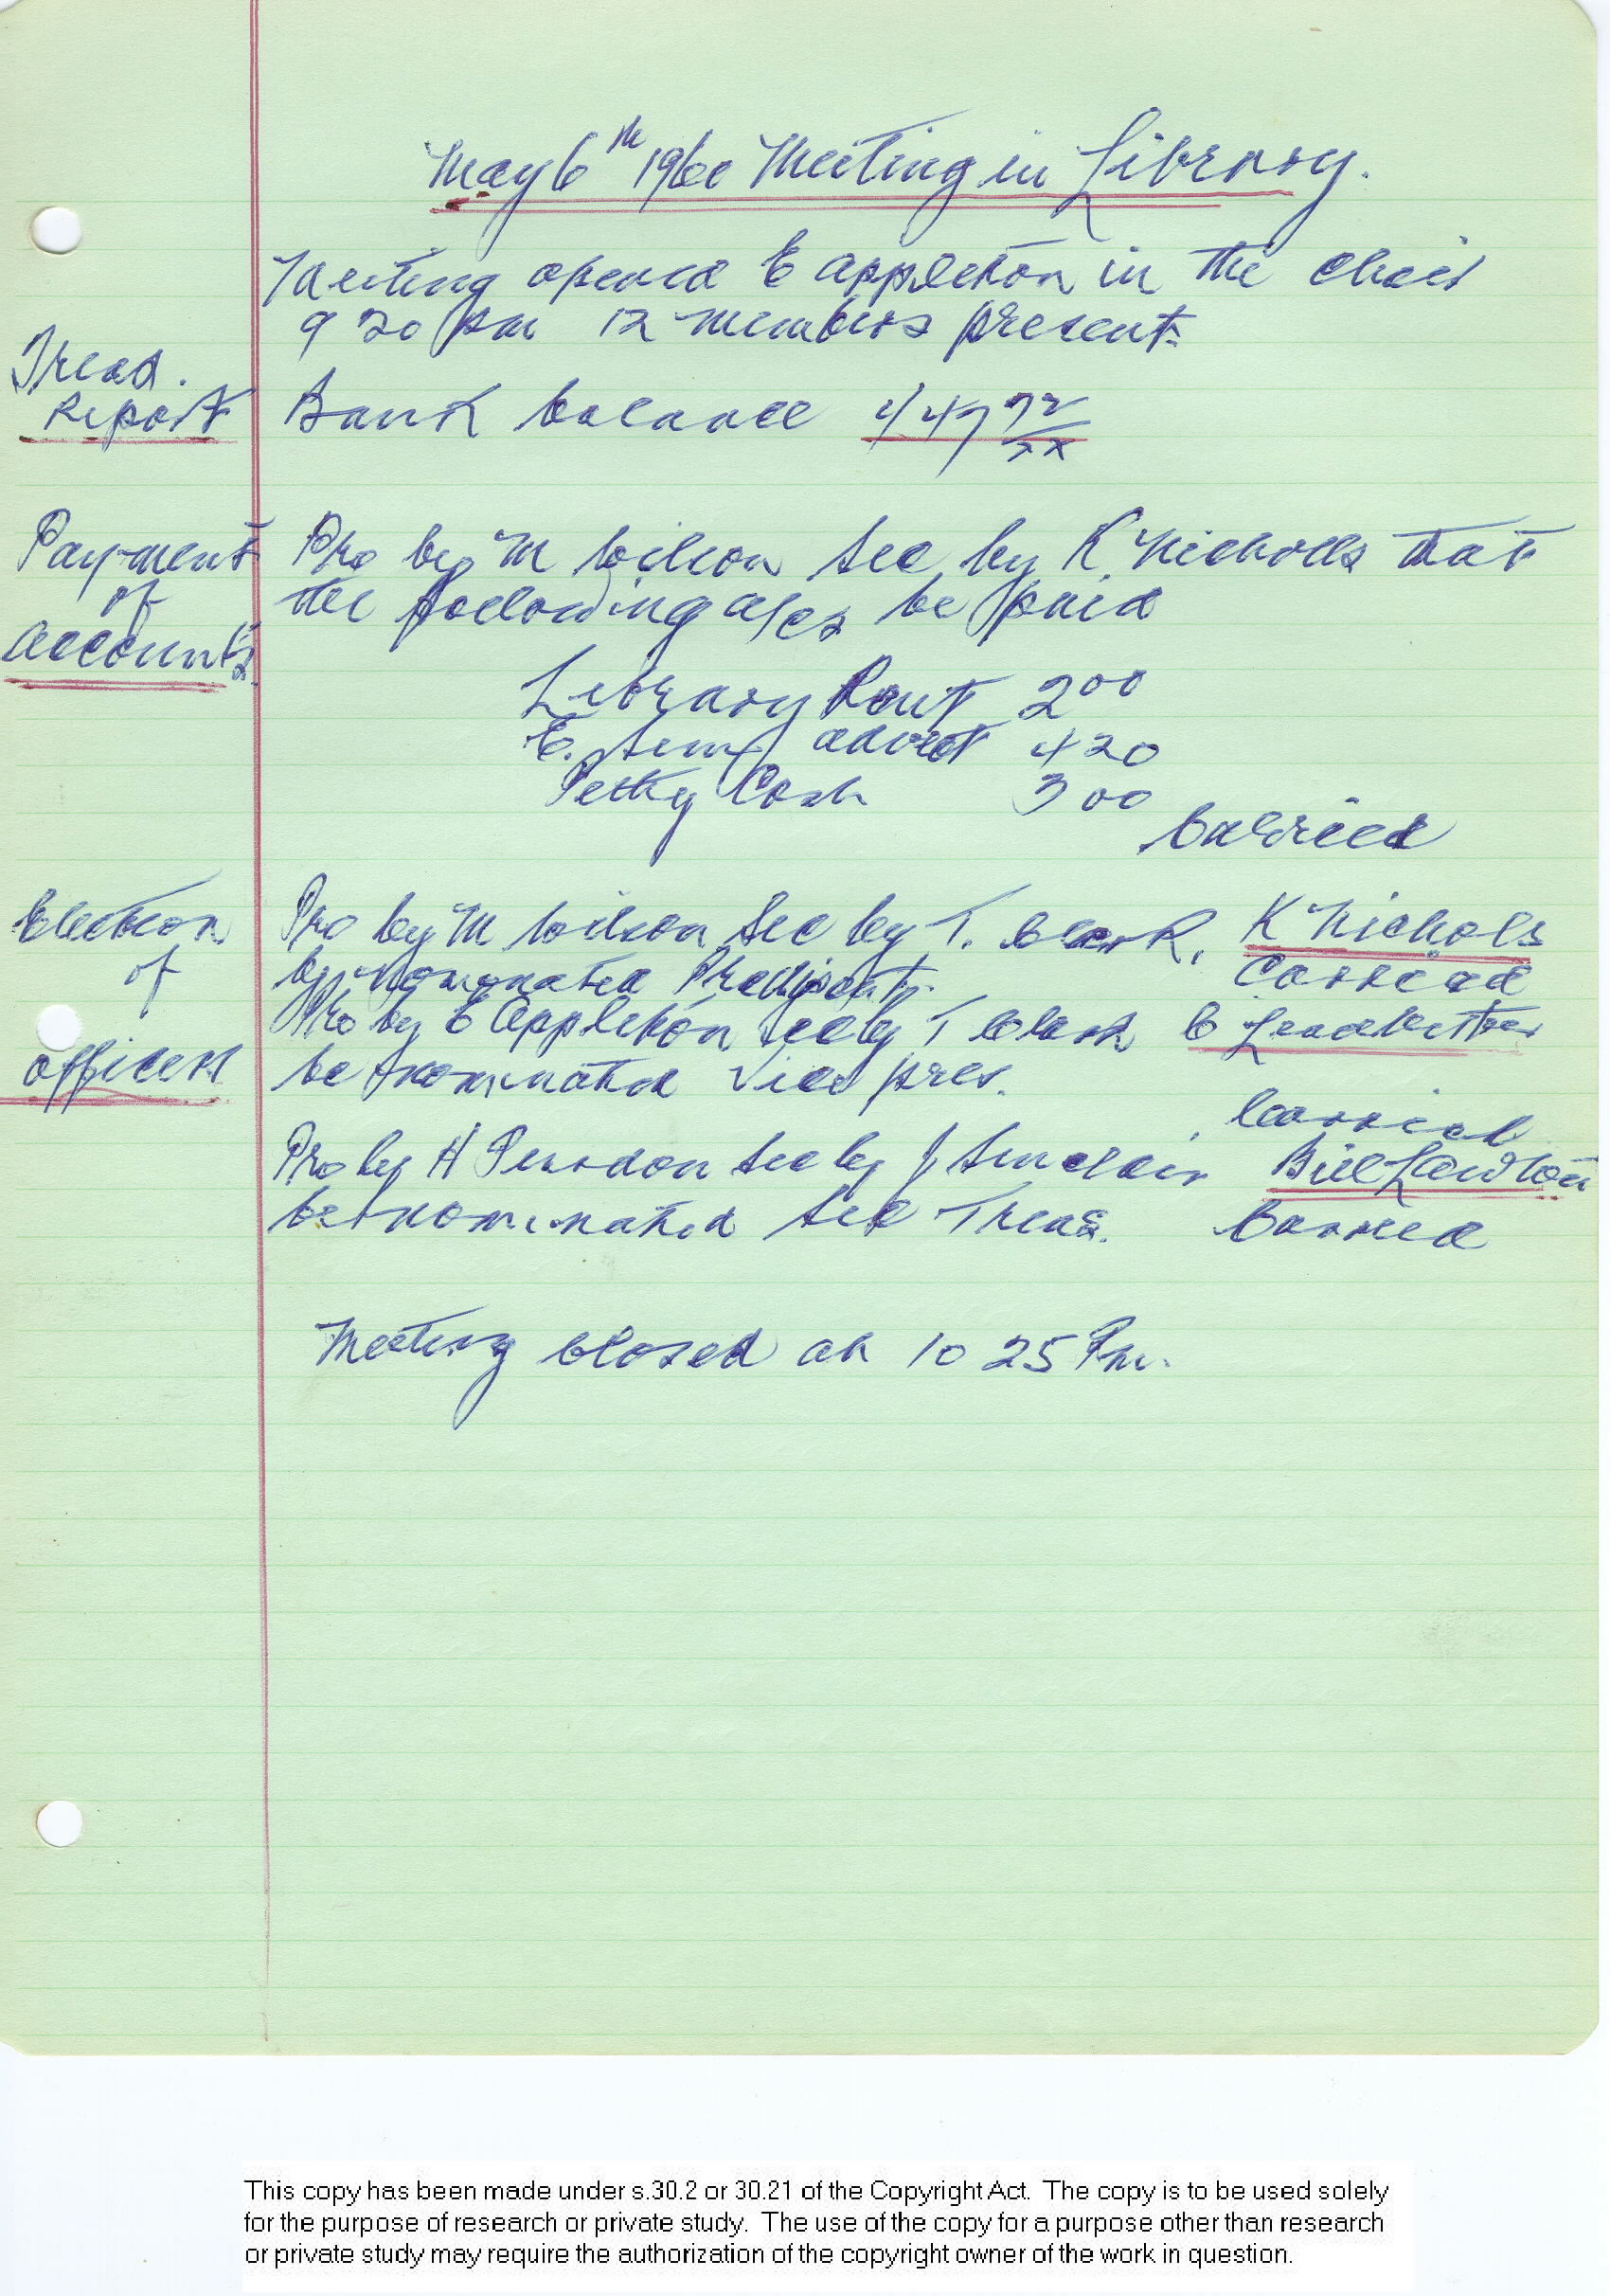 May 6th 1960 Meeting in Library.
Meeting opened E Appleton in the chair
9 20 pm 12 members present.
Treas.
Report
Bank balance 447 72/xx
Payment
of
accounts
Pro by M Wilson Sec by K. Nicholls that
the following a/cs be paid
Library Rent 2 00
E. advert 4 20
Petty Cash 3 00
Carried
Election
of
officers
Pro by M Wilson Sec by T. Clark. K Nichols
be nominated President. Carried
Pro by E Appleton Sec by T Clark C Leadbetter
be nominated Vice pres.
Carried
Pro by H Sec by J Sinclair Bill Lawton
be nominated Sec Treas. Carried
Meeting closed at 10 25 Pm.
This copy has been made under s.30.2 or 30.21 of the Copyright Act. The copy is to be used solely
for the purpose of research or private study. The use of the copy for a purpose other than research
or private study may require the authorization of the copyright owner of the work in question.